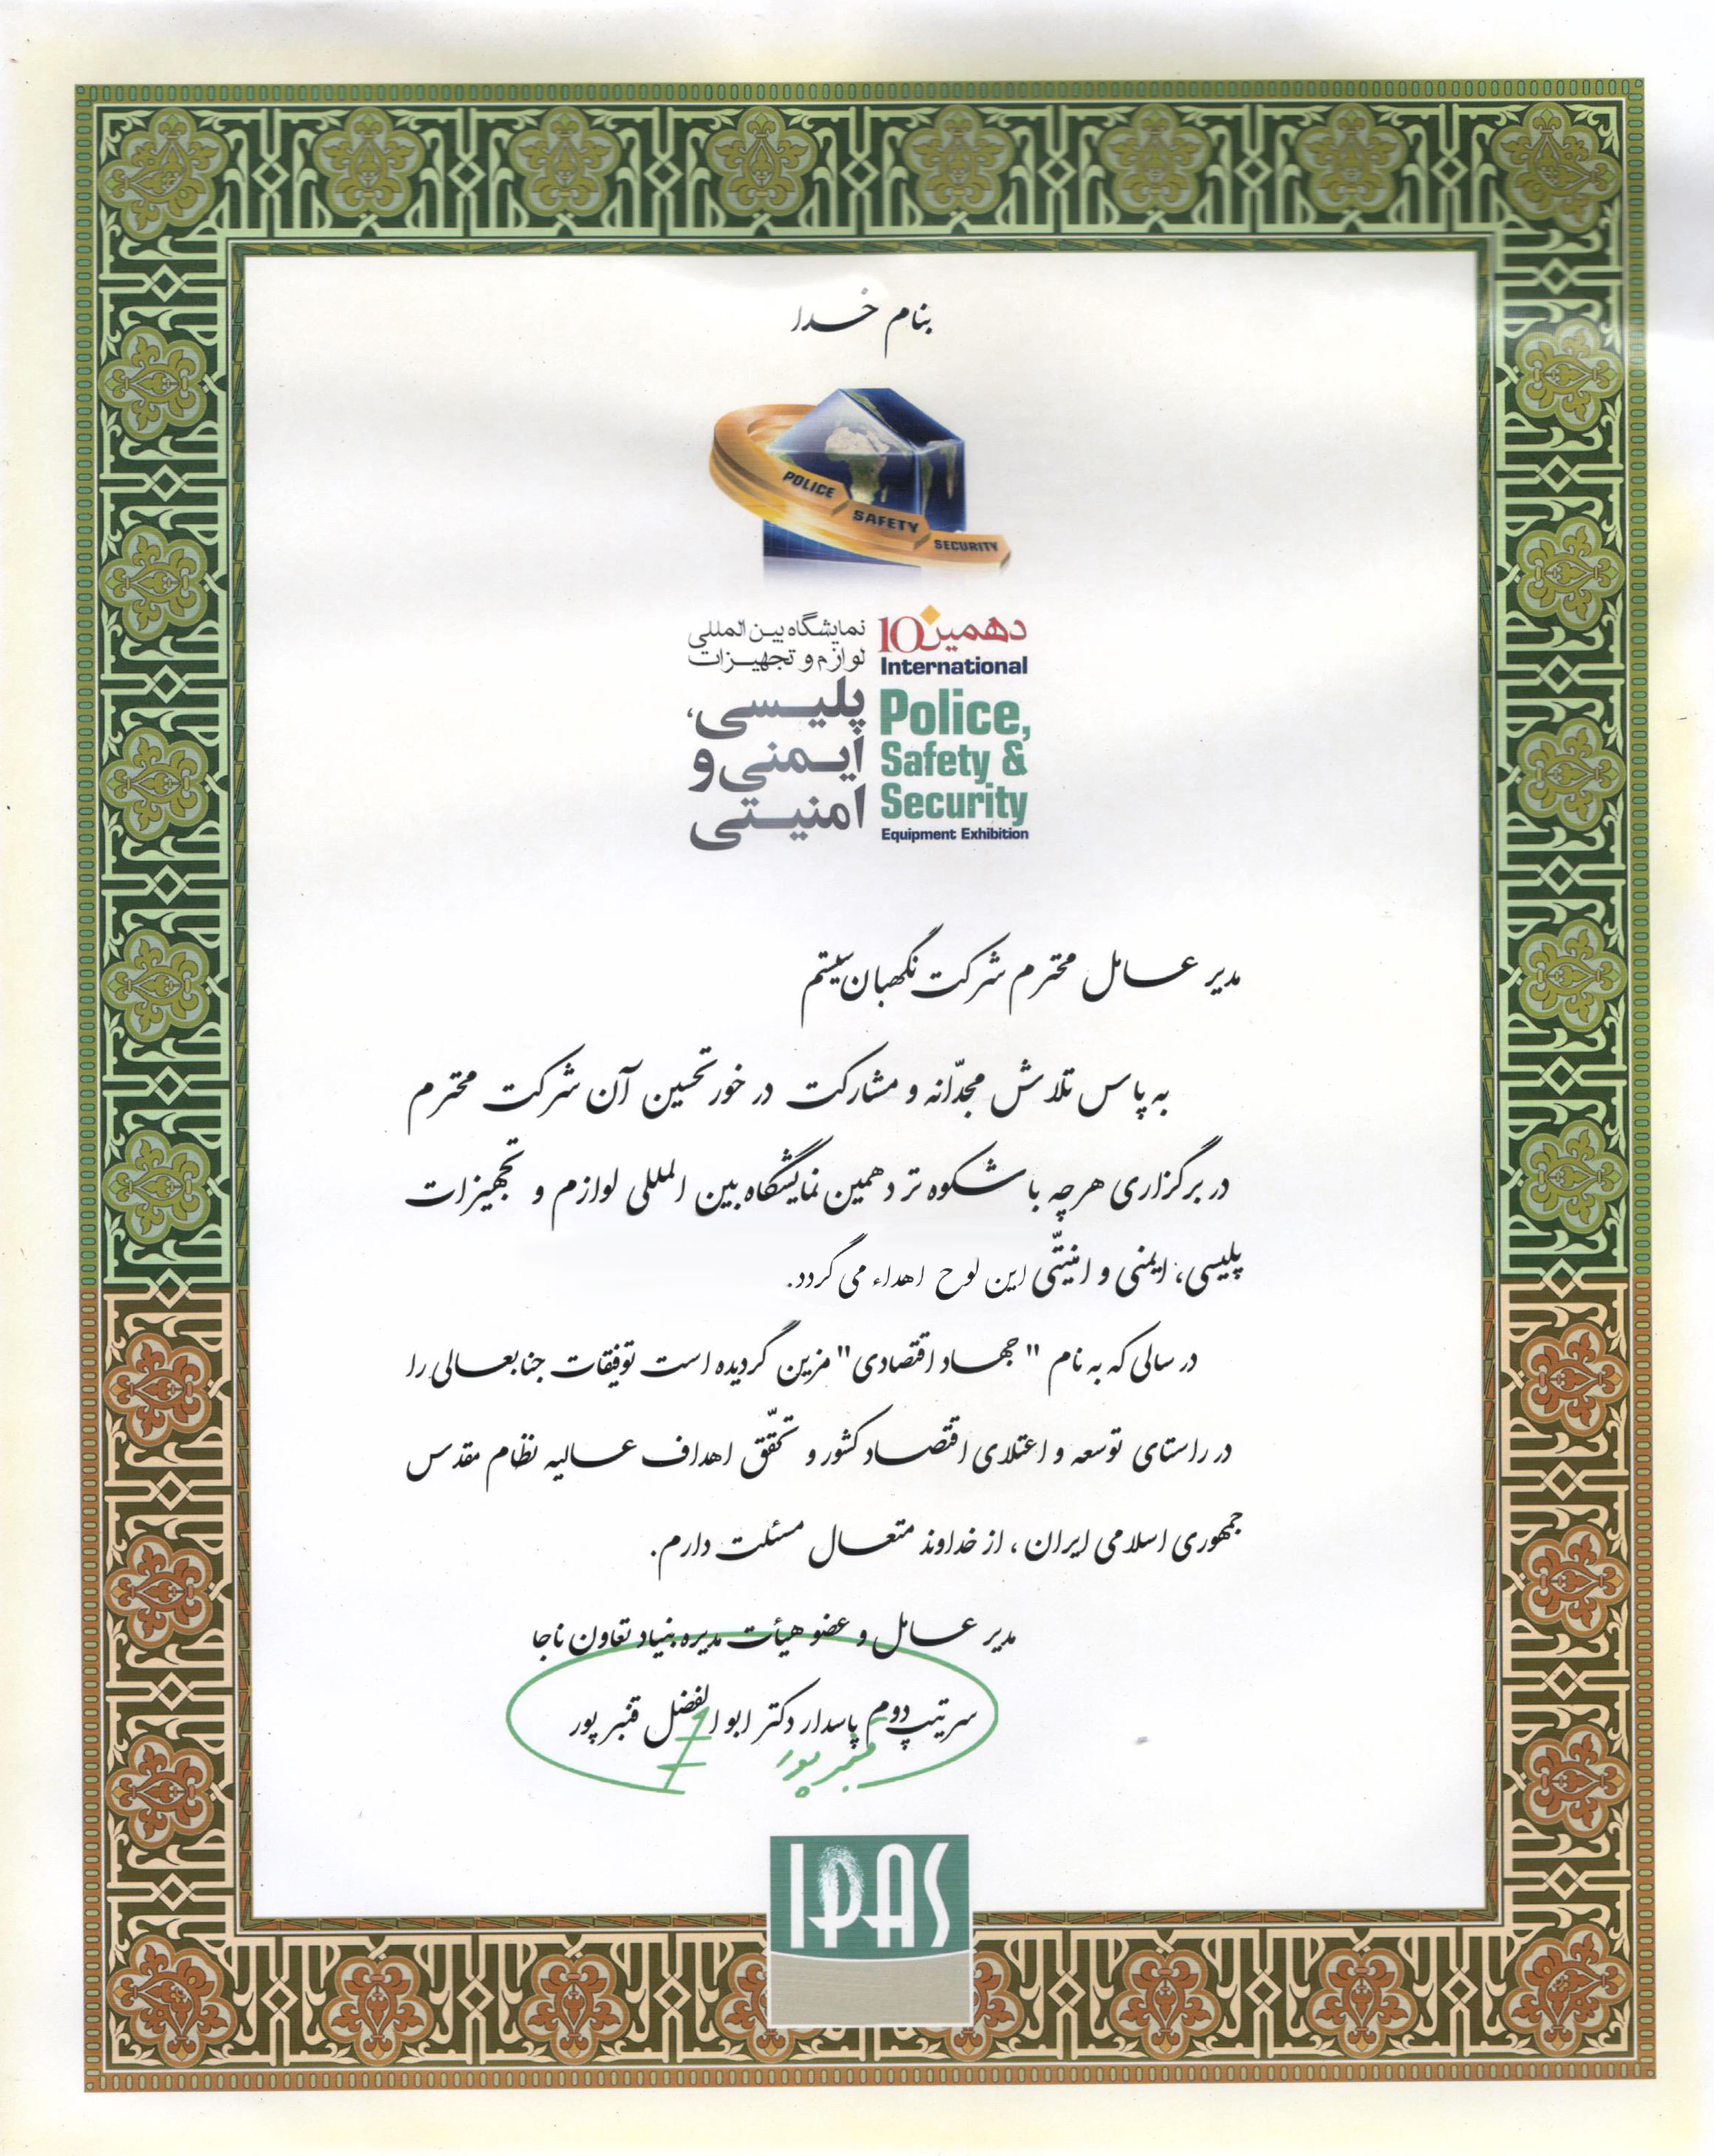 بنام خدا
POLICE
SAFETY
SECURITY
دهمین 10
International
Police,
Safety &
Security
Equipment Exhibition
نمایشگاه بین المللی
لوازم و تجهیزات
پلیسی،
ایمنی و
امنیتی
مدیر عامل محترم شرکت نگهبان سیستم
به پاس تلاش مجدّانه و مشارکت در خور تحسین آن شرکت محترم
در برگزاری هر چه با شکوه تر دهمین نمایشگاه بین المللی لوازم و تجهیزات
پلیسی، ایمنی و امنیتّی این لوح اهداء می گردد.
در سالی که به نام "جهاد اقتصادی" مزین گردیده است توفیقات جنابعالی را
در راستای توسعه و اعتلای اقتصاد کشور و تحقّق اهداف عالیه نظام مقدس
جمهوری اسلامی ایران، از خداوند متعال مسئلت دارم.
مدیر عامل و عضو هیأت مدیره بنیاد تعاون ناجا
سرتیپ دوم پاسدار دکتر ابوالفضل قنبرپور
قنبرپور
IPAS